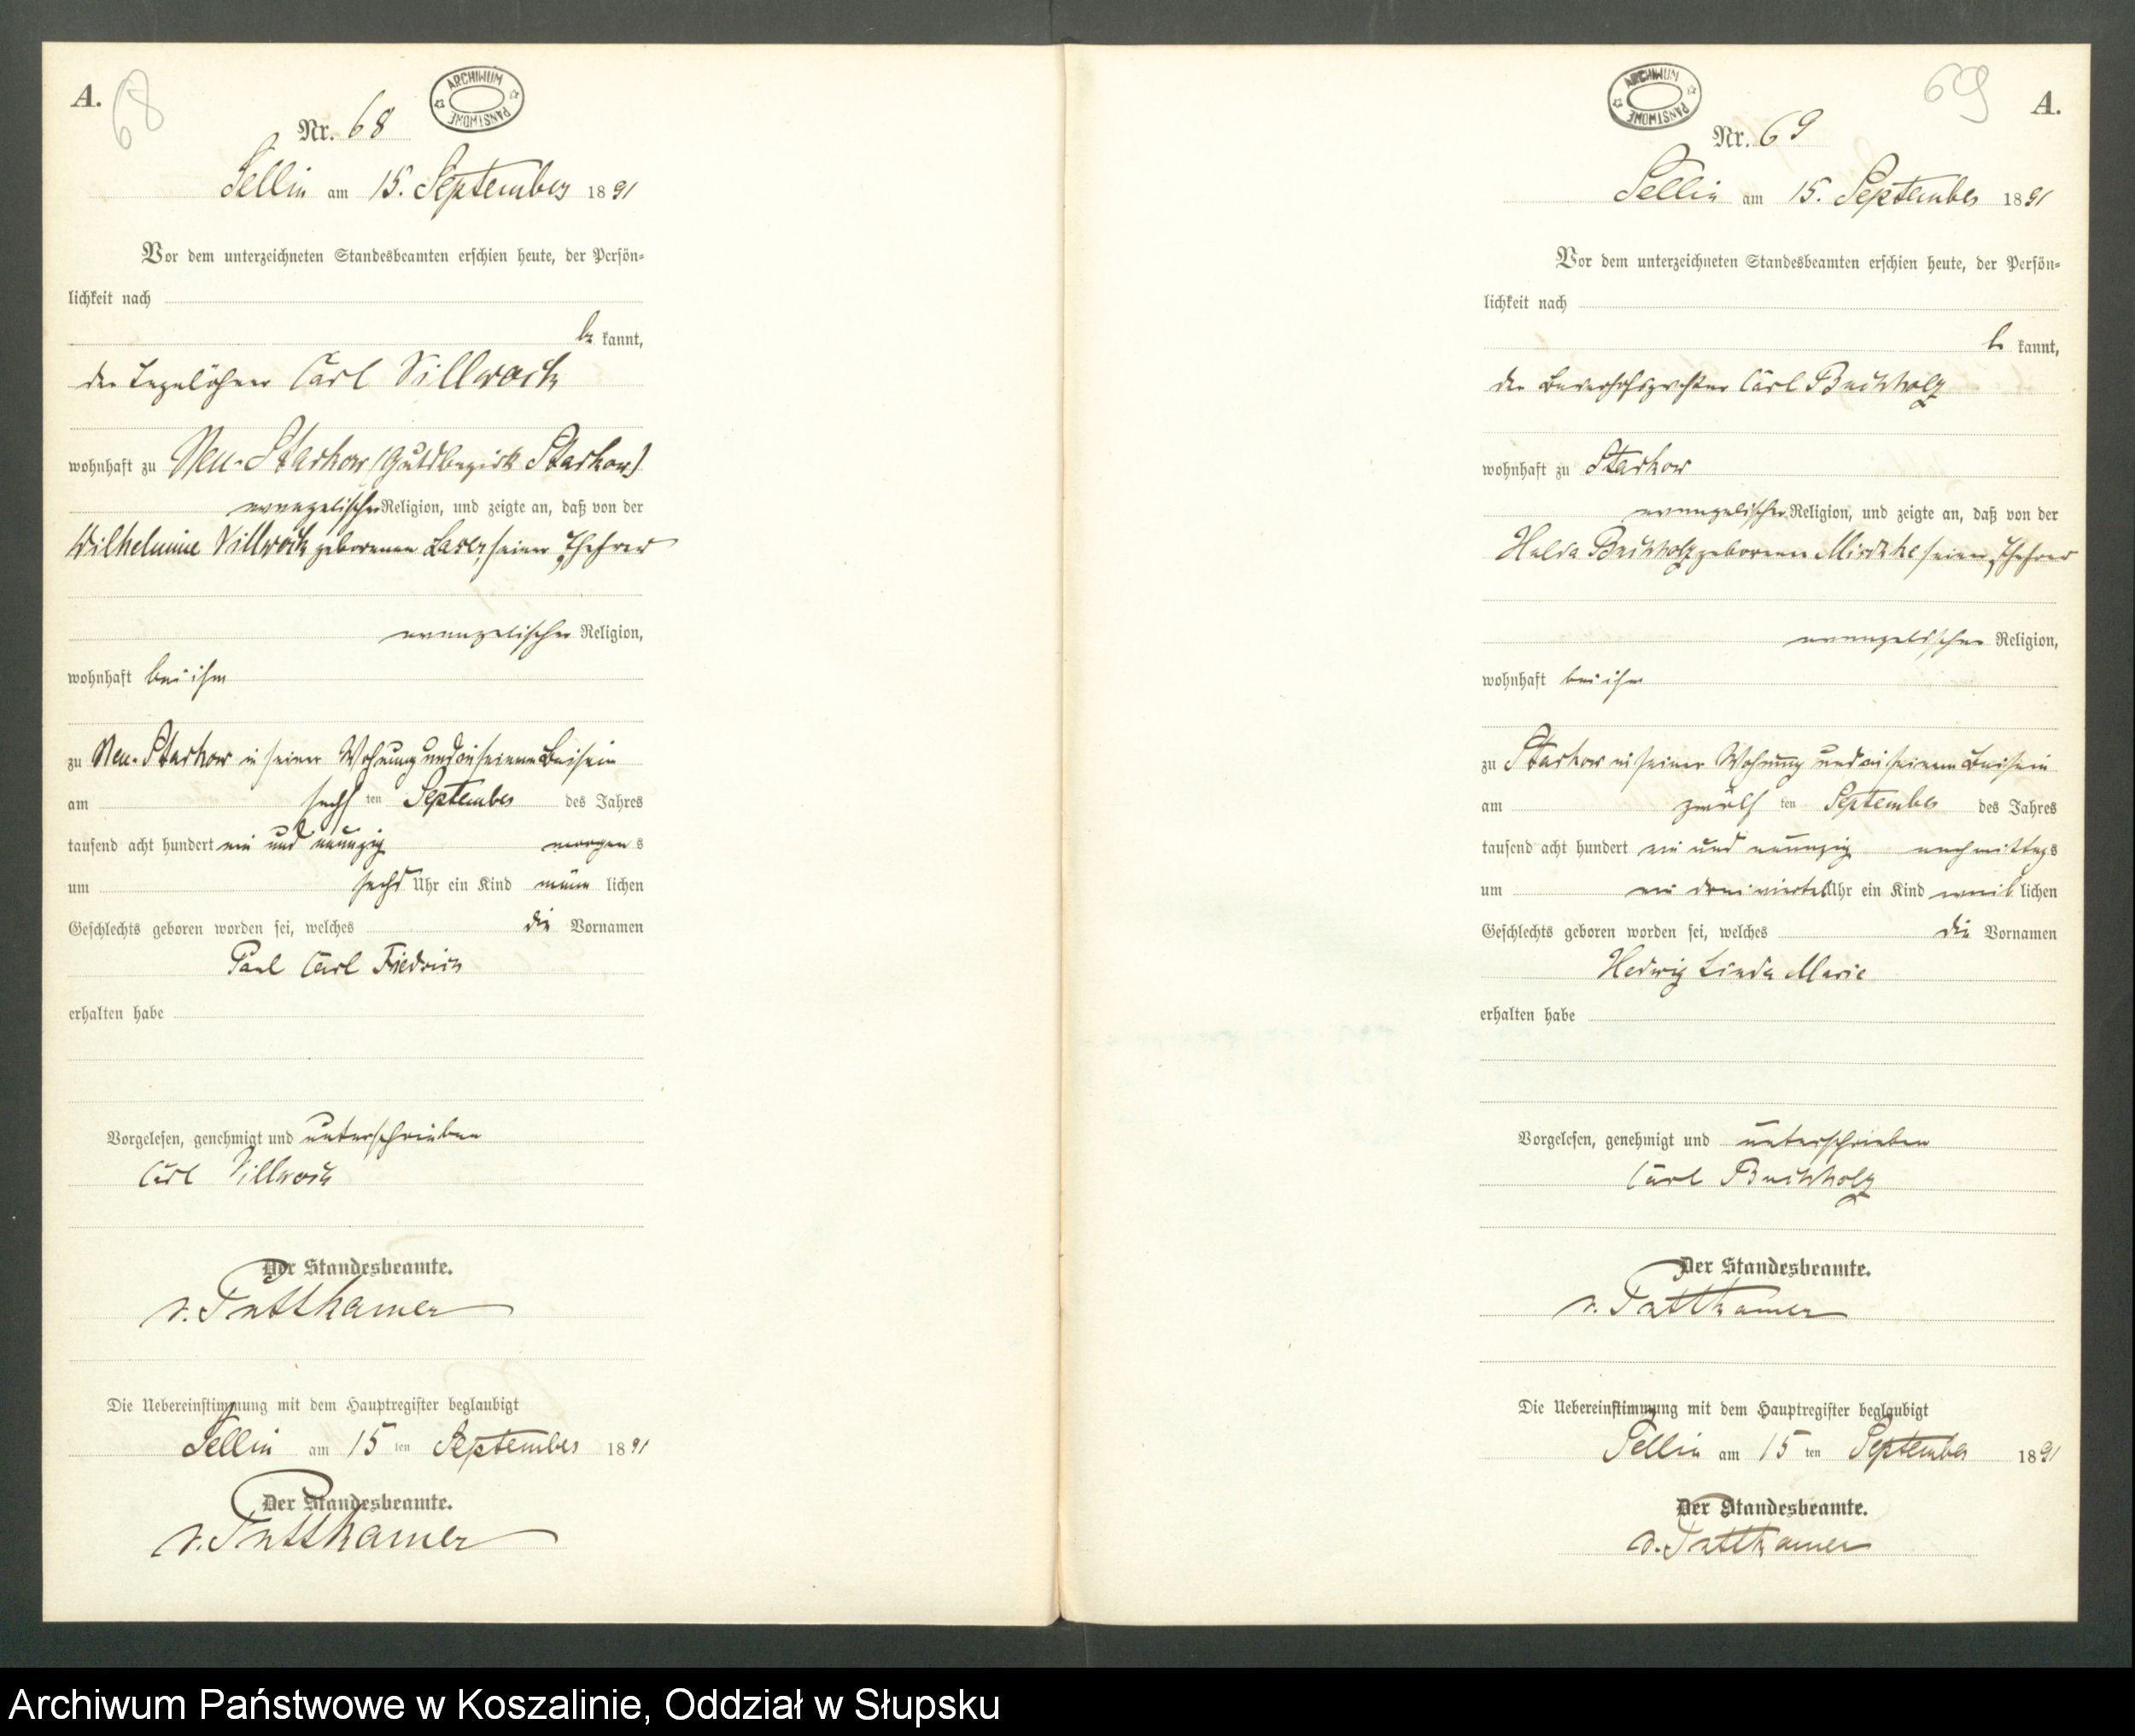 A.
68
ARCHIWUM PAŃSTWOWE
Nr. 68
Sellin am 15. September 1891
Vor dem unterzeichneten Standesbeamten erschien heute, der Persön-
lichkeit nach
be kannt,
der Tagelöhner Carl Villwock
wohnhaft zu Neu-Starkow (Gutsbezirk Starkow)
evangelischer Religion, und zeigte an, daß von der
Wilhelmine Villwock geborenen Laser, seiner Ehefrau
evangelischer Religion,
wohnhaft bei ihm
zu Neu-Starkow in seiner Wohnung und in seinem Beisein
am sechs ten September des Jahres
tausend acht hundert ein und neunzig morgen s
um sechs Uhr ein Kind männ lichen
Geschlechts geboren worden sei, welches die Vornamen
Paul Carl Friedrich
erhalten habe
Vorgelesen, genehmigt und unterschrieben
Carl Villwock
Der Standesbeamte.
v. Puttkamer
Die Uebereinstimmung mit dem Hauptregister beglaubigt
Sellin am 15 ten September 1891
Der Standesbeamte.
v. Puttkamer
69
A.
ARCHIWUM PAŃSTWOWE
Nr. 69
Sellin am 15. September 1891
Vor dem unterzeichneten Standesbeamten erschien heute, der Persön-
lichkeit nach
be kannt,
der Bauerhofspächter Carl Buchholz
wohnhaft zu Starkow
evangelischer Religion, und zeigte an, daß von der
Hulda Buchholz geborenen seiner Ehefrau
evangelischer Religion,
wohnhaft bei ihm
zu Starkow in seiner Wohnung und in seinem Beisein
am zwölf ten September des Jahres
tausend acht hundert ein und neunzig nachmittag s
um ein dreiviertel Uhr ein Kind weib lichen
Geschlechts geboren worden sei, welches die Vornamen
Hedwig Linda Marie
erhalten habe
Vorgelesen, genehmigt und unterschrieben
Carl Buchholz
Der Standesbeamte.
v. Puttkamer
Die Uebereinstimmung mit dem Hauptregister beglaubigt
Sellin am 15 ten September 1891
Der Standesbeamte.
v. Puttkamer
Archiwum Państwowe w Koszalinie, Oddział w Słupsku